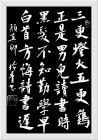 三更燈火五更雞
正是男兒讀書時
黑髮不知勤學早
白首方悔讀書遲
顏真卿